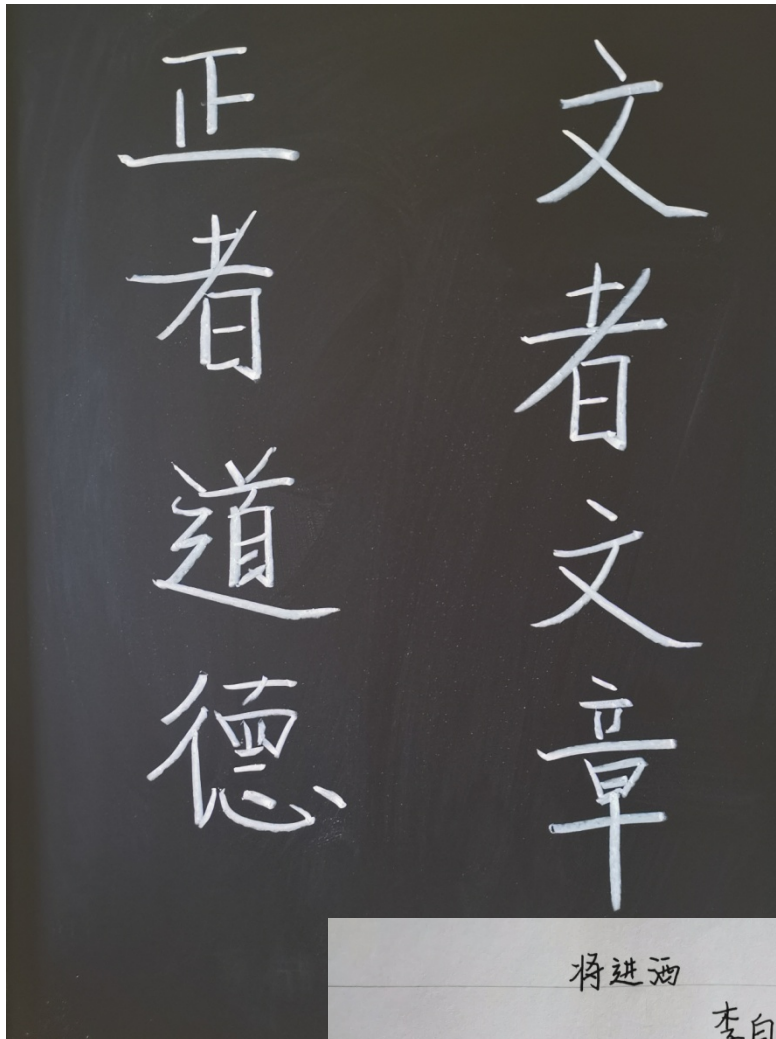 文者文章
正者道德
将进酒
李白